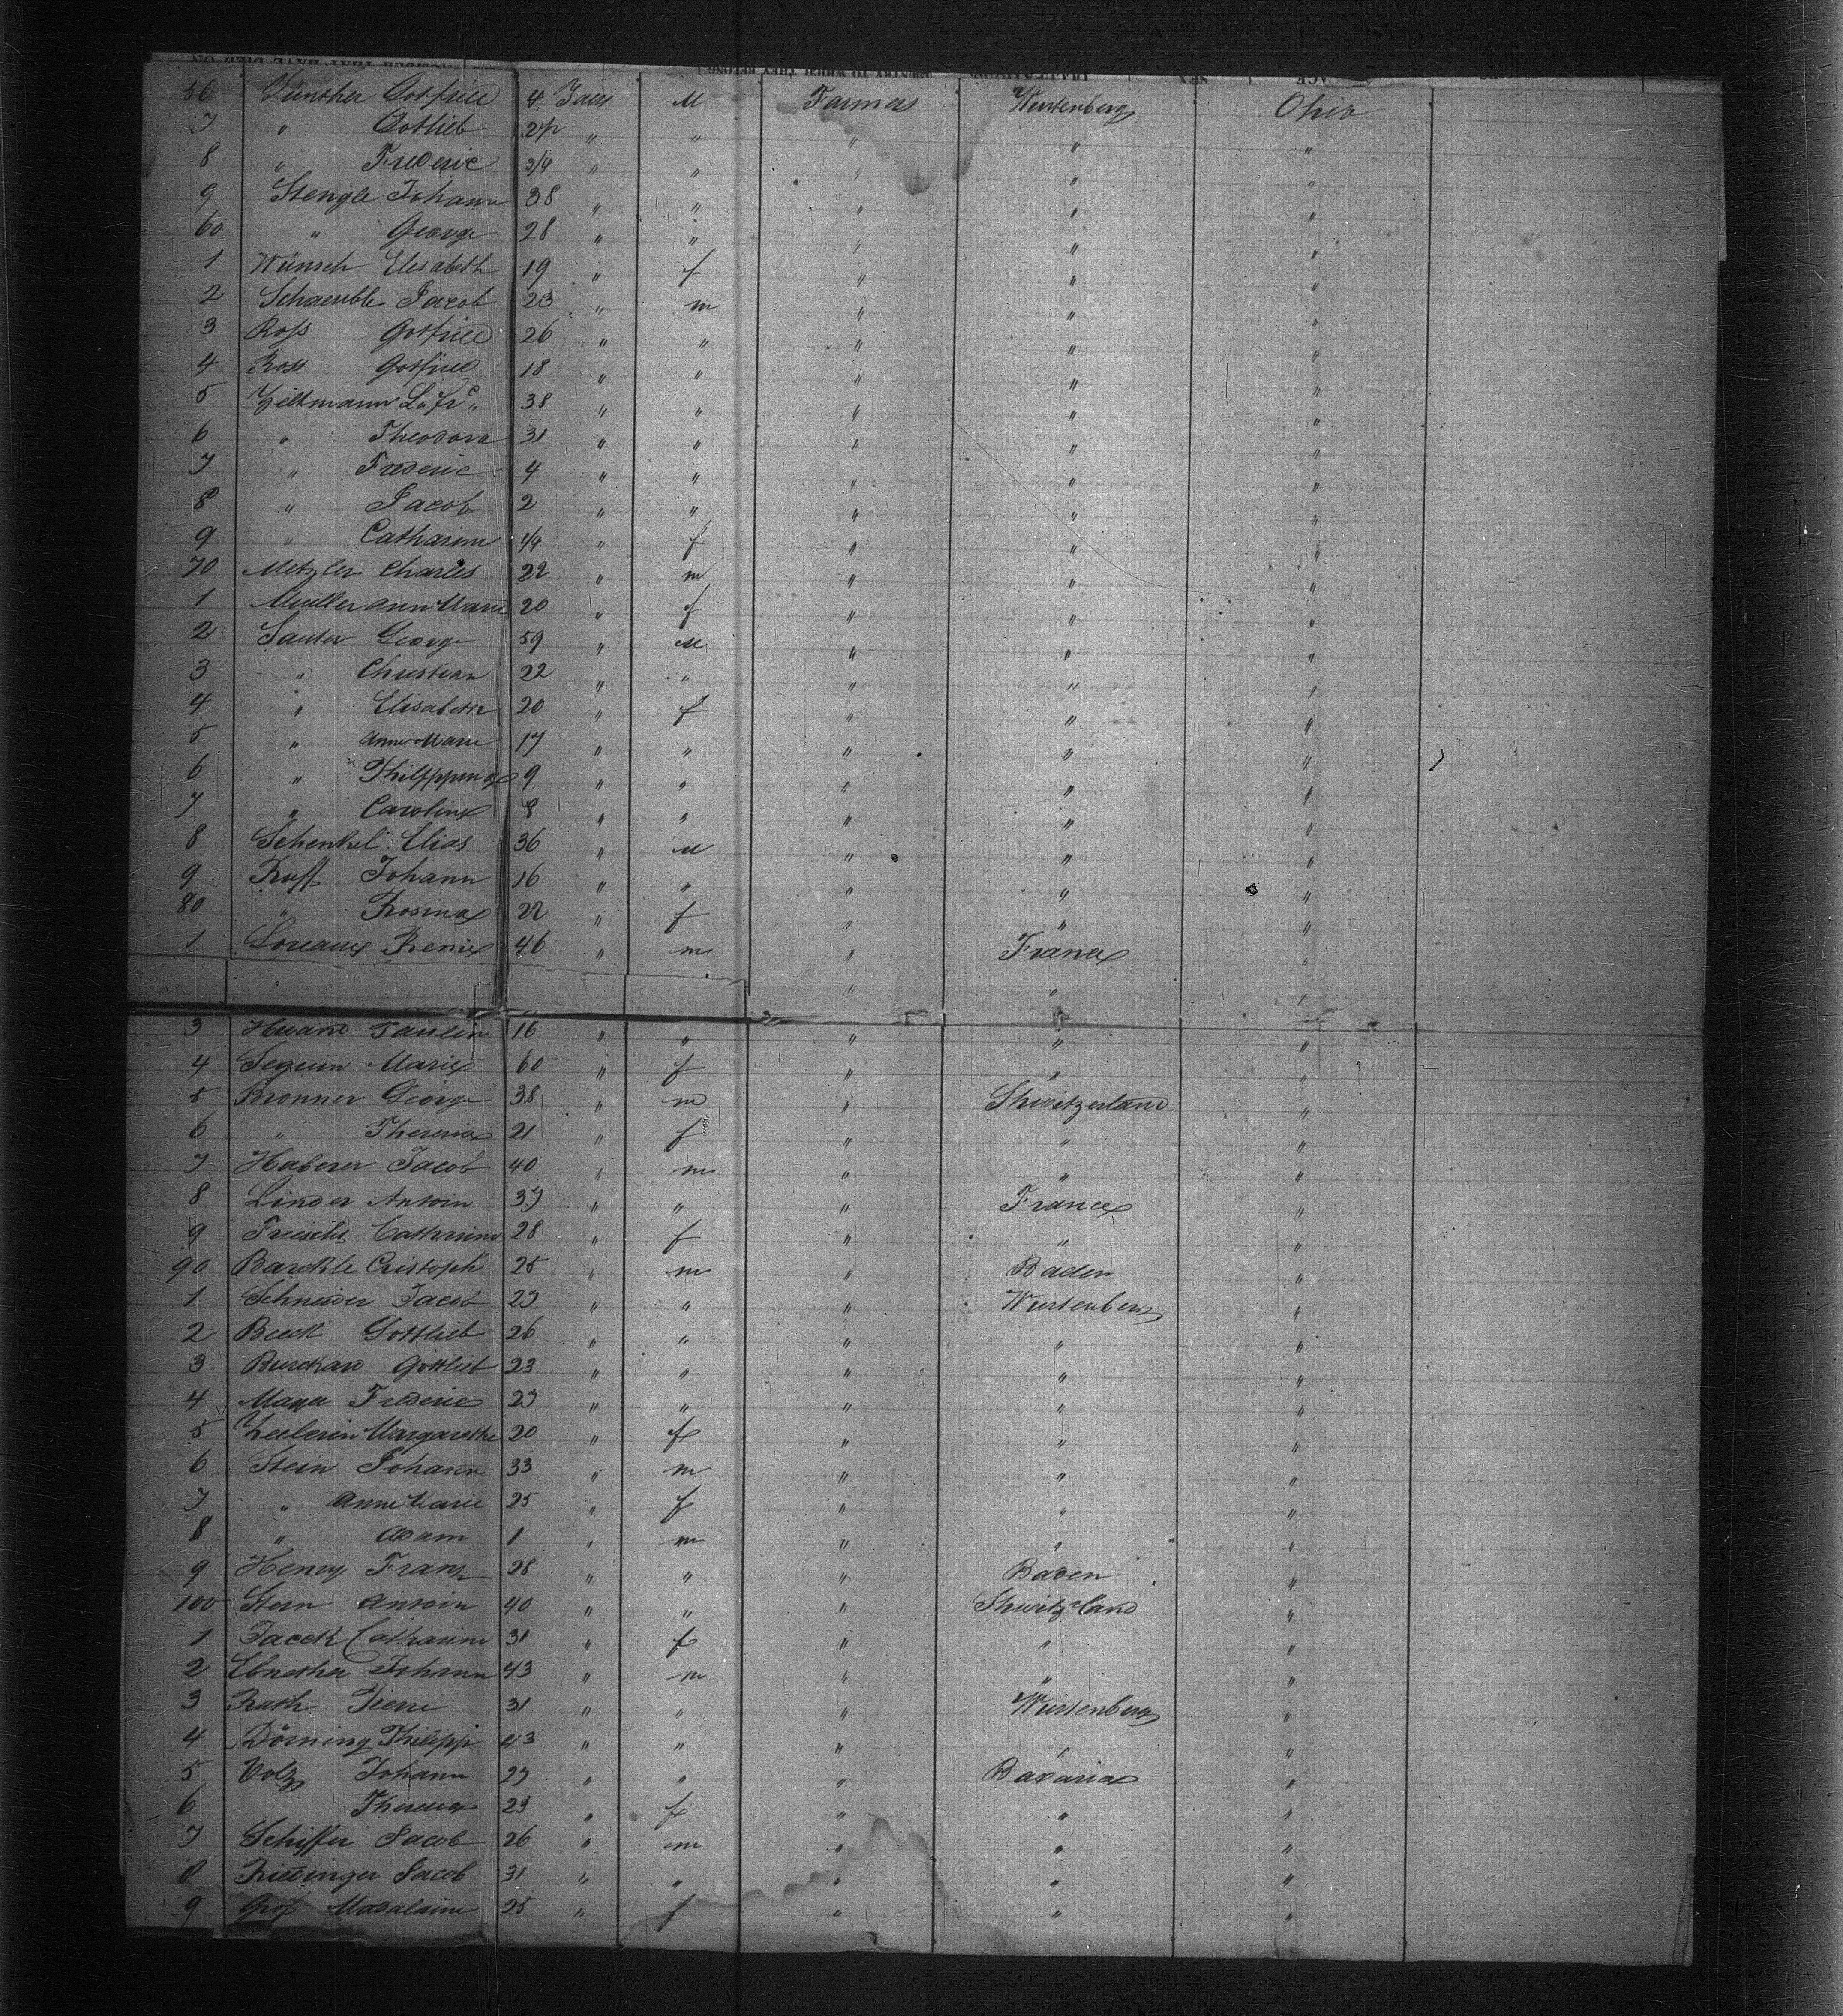 56 Günther Gotfried 4 Jaers M Farmers Wurtenberg Ohio
7 " Gotlieb 2½ " " " " "
8 " Frederic 3/4 " " " " "
9 Stengle Johann 38 " " " " "
60 " George 28 " " " " "
1 Wünsch Elisabeth 19 " f " " "
2 Schaeuble Jacob 23 " m " " "
3 Ross Gotfried 26 " " " " "
4 Ross Gotfried 18 " " " " "
5 38 " " " " "
6 " Theodora 31 " " " " "
7 " Frederic 4 " " " " "
8 " Jacob 2 " " " " "
9 " Catharine 1/4 " f " " "
70 Metzler Charles 22 " m " " "
1 Müller Ann Marie 20 " f " " "
2 Sauter George 59 " M " " "
3 " Christian 22 " " " " "
4 " Elisabeth 20 " f " " "
5 " Anne Marie 17 " " " " "
6 " Philippine 9 " " " " "
7 " Caroline 8 " " " " "
8 Schenkel Elias 36 " M " " "
9 Ruff Johann 16 " " " " "
80 " Rosina 22 " f " " "
1 46 " m " France "
" " "
3 16 " " " " "
4 Seguin Marie 60 " f " " "
5 Bronner George 38 " m " Shwitzerland "
6 " Theresia 21 " f " " "
7 Haberer Jacob 40 " m " " "
8 Linder Antoin 37 " " " France "
9 Catharine 28 " f " " "
90 Barckle Cristoph 25 " m " Baden "
1 Schneider Jacob 27 " " " Wurtenberg "
2 Beeck Gottlieb 26 " " " " "
3 Burckard Gottlieb 23 " " " " "
4 Mayer Frederic 27 " " " " "
5 Margarethe 20 " f " " "
6 Stein Johann 33 " m " " "
7 " Anne Marie 25 " f " " "
8 " Adam 1 " m " " "
9 Henry Franz 28 " " " Baden "
100 Stern Antoin 40 " " " Shwitzland "
1 Jaeck Catharine 31 " f " " "
2 Ebnether Johann 43 " m " " "
3 Rath Pierri 31 " " " Wurtenberg "
4 Dörning Philipp 43 " " " " "
5 Volz Johann 27 " " " Bavaria "
6 Theresia 23 " f " " "
7 Schiffer Jacob 26 " m " " "
8 Riedinger Jacob 31 " " " " "
9 Gross Madalaine 25 " f " " "